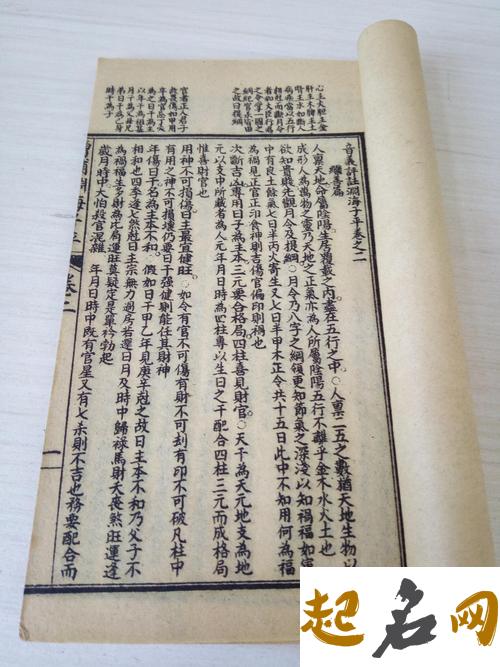 心主火肥主金
肝主木脾主土
腎主水如斷人
病症當以五行
相剋而斷月令
者如大臣行君
之令掌一國之
綱紀官吏皆由
之故曰提綱
官者正人君子
畏傷如甲用
辛為官忌丁火
為之日干為主
以年干為祖基
月干為父母兄
弟日干為己身
時干為子
音義評註淵海子平卷之二
繼善篇
人稟天地命屬陰陽生居覆載之內盡在五行之中○人稟二五之數猶天地生物以
成形人為萬物之靈乃天地之正氣亦為人所屬陰陽五行不離乎金木水火土也
欲知貴賤先觀月令及提綱○月令乃八字之綱領更知節氣之深淺以知禍福如寅
中有艮土餘氣七日半丙火寄生又七日半甲木正令共十五日此中不知用何為福
為禍見正官正印食神則吉傷官偏印則禍也
次斷吉凶專用日干為主本三元要合格局四柱喜見財官○天干為天元地支為地
元支中所藏者為人元年月日時為四柱專以生日之干配合四柱三元而成格局
惟喜財官也
用神不可損傷日主最宜健旺○如令有官不可傷有財不可刦有印不可破凡柱中
有用之神不可損壞仍要日干強健則能任其財神
年傷日干名為主本不和○假如日干甲乙年見庚辛剋之故曰主本不和乃父子不
相和也四季逢七煞剋日主宗無力過房若還日月及時中歸祿馬財天喪煞旺運逢
為禍福生多財為比肩運旺莫疑定是單衿勃起
歲月時中大怕殺官混雜 年月日時中既有官星又有七煞則不吉也務要配合而
一
起名网